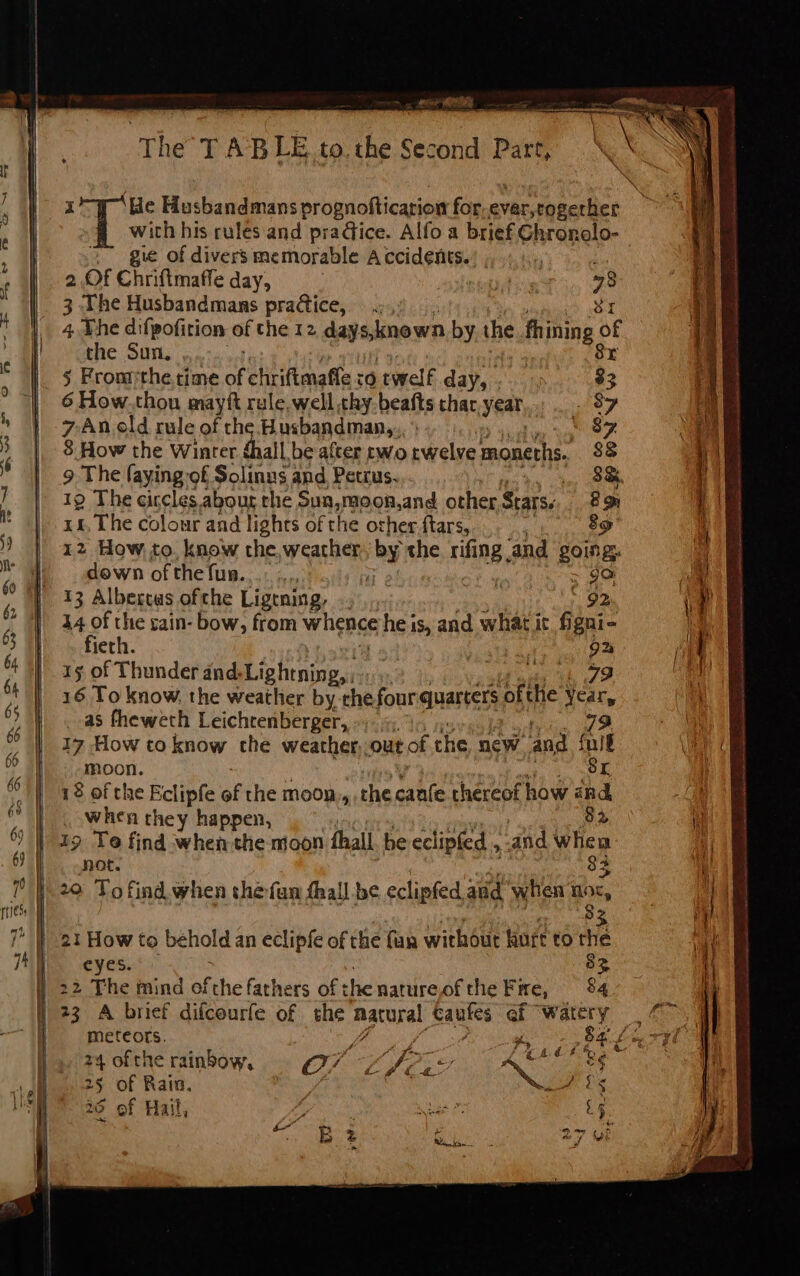 The TABLE to the Second Part,
1 THe Husbandmans prognostication for ever, together
with his rules and practice. Also a brief Chronolo-
gie of divers memorable Accidents.
2 Of Christmasse day, 78
3 The Husbandmans practice, 81
4 The disposition of the 12 days, known by the shining of
the Sun. 81
5 From the time of christmasse to twelf day, 83
6 How thou mayst rule well thy beasts that year, 87
7 An old rule of the Husbandman, 87
8 How the Winter shall be after two twelve moneths. 88
9 The saying of Solinus and Petrus. 88
10 The circles about the Sun, moon, and other Stars. 89
11 The colour and lights of the other stars, 89
12 How to know the weather, by the rising and going
down of the sun. 90
13 Albertus of the Ligtning, 92
14 of the rain-bow, from whence he is, and what it signi-
fieth. 92
15 of Thunder and Lightning, 79
16 To know the weather by the four quarters of the year,
as sheweth Leichtenberger, 79
17 How to know the weather, out of the new and full
moon. 81
18 of the Eclipse of the moon, the cause thereof how and
when they happen, 82
19 To find when the moon shall be eclipsed, and when
not. 83
20 To find when the sun shall be eclipsed and when not,
83
21 How to behold an eclipse of the sun without hurt to the
eyes. 83
22 The mind of the fathers of the nature of the Fire, 84
23 A brief discourse of the natural Causes of watery
meteors. 84
24 of the rainbow,
25 of Rain.
26 of Hail,
B 2
27 of